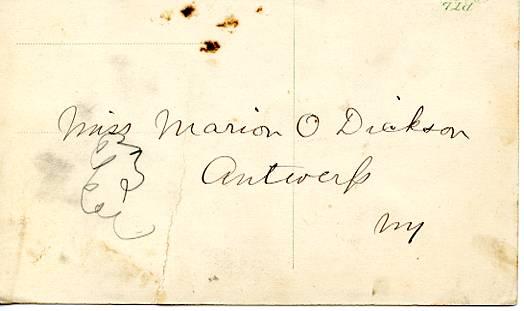 Miss Marion O Dickson
Antwerp
NY